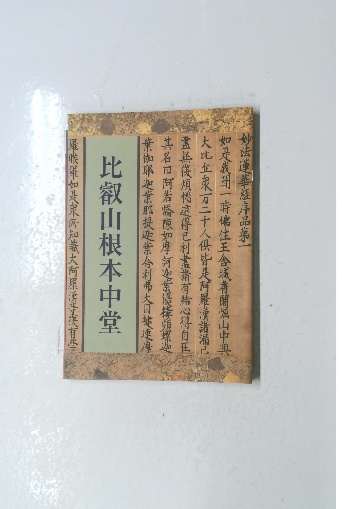 妙法蓮華経序品第一
如是我聞一時佛住王舎城耆闍崛山中與
大比丘衆万二千人倶皆是阿羅漢諸漏已
盡無復煩悩逮得己利盡諸有結心得自在
其名曰阿若憍陳如摩訶迦葉優樓頻螺迦
葉伽耶迦葉那提迦葉舎利弗大目揵連摩
比叡山根本中堂
羅睺羅如是衆所知識大阿羅漢等復有